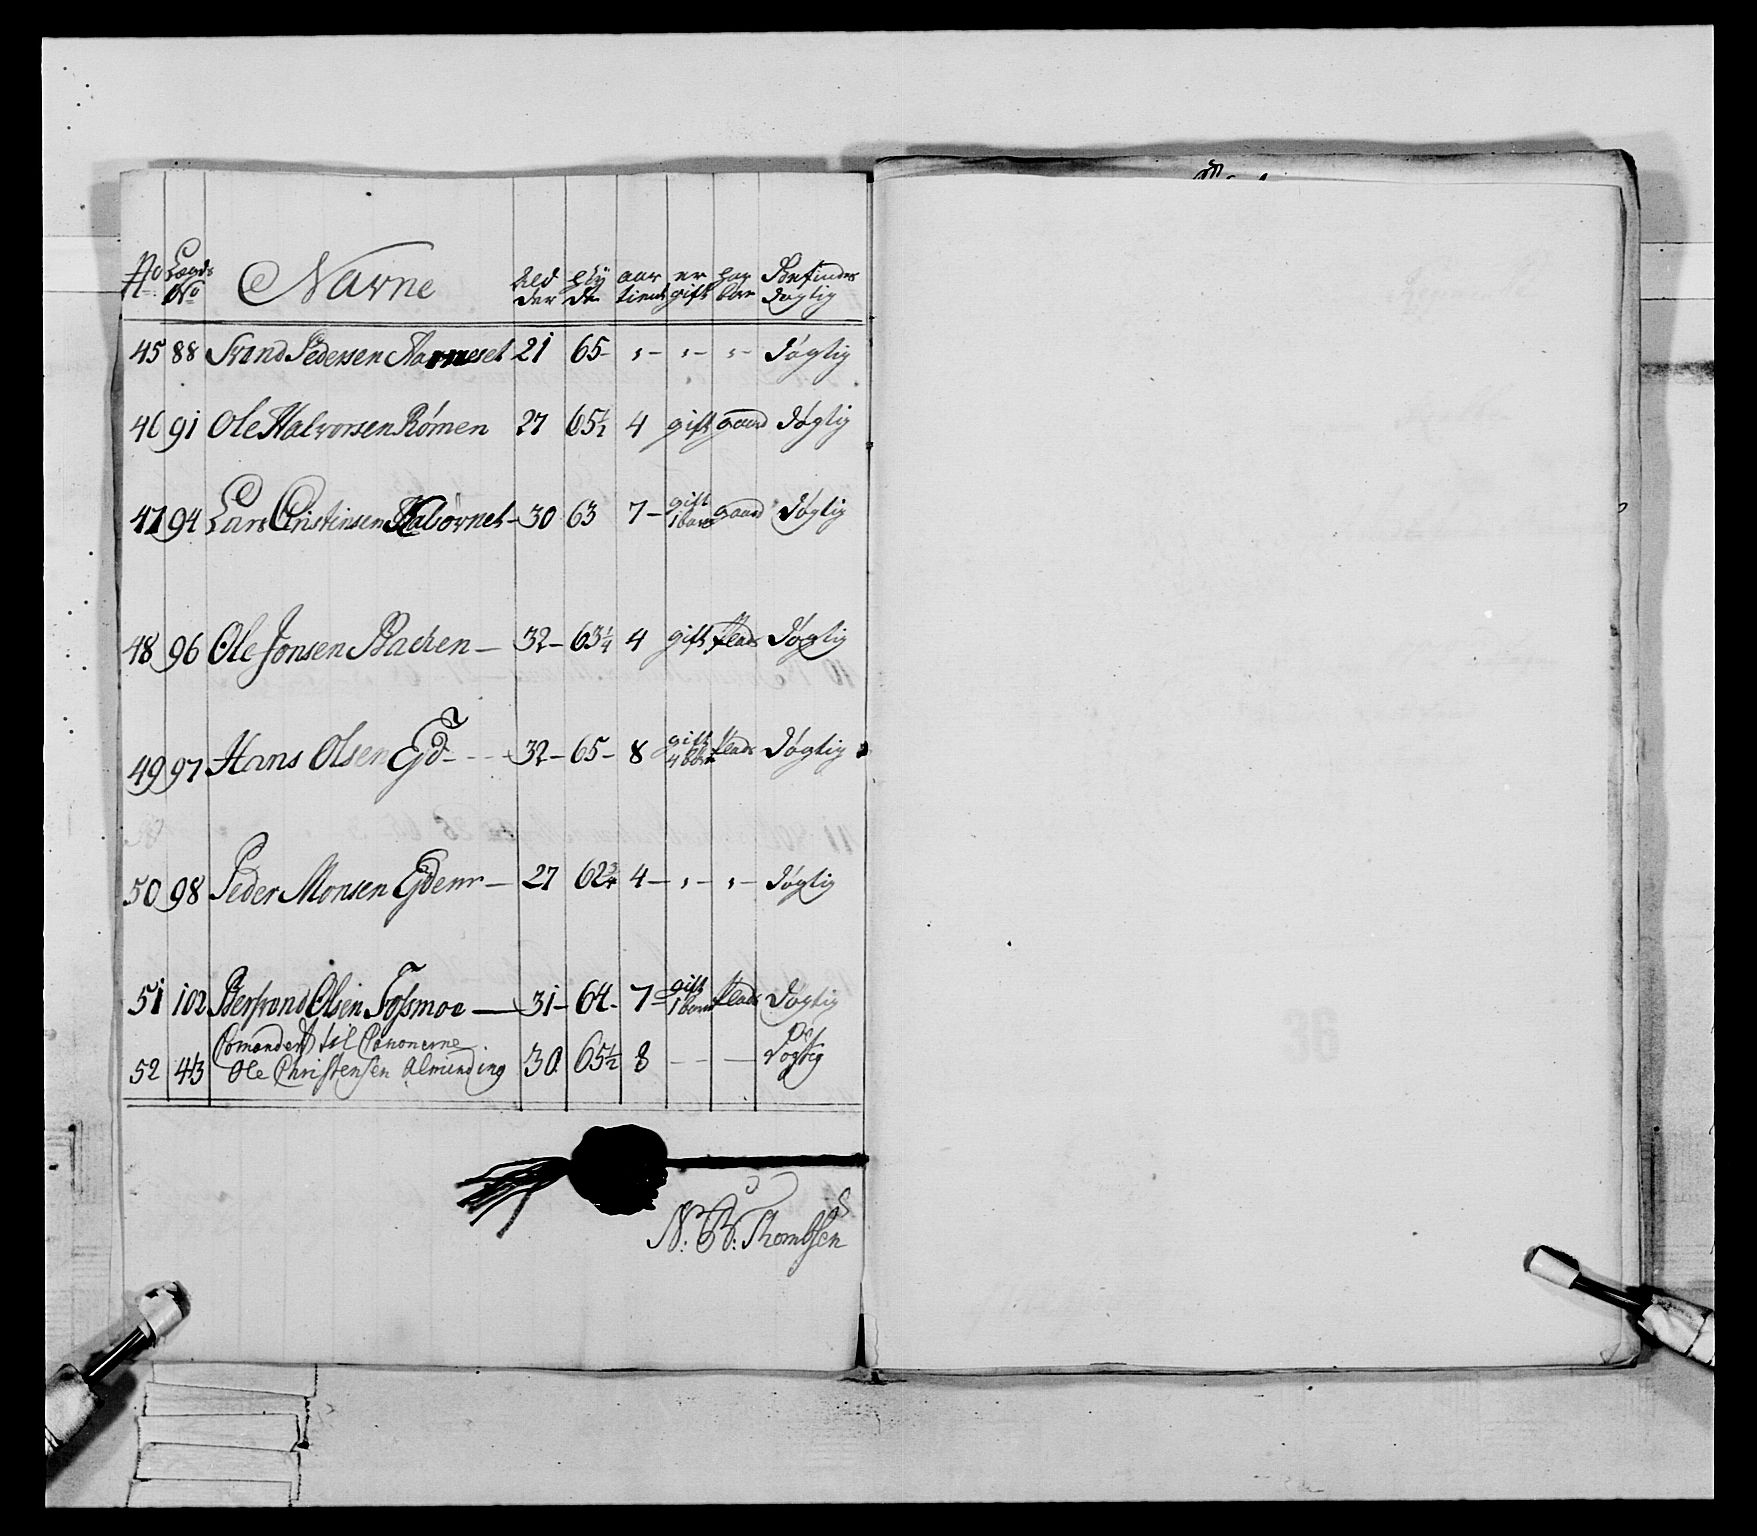 No Lægds No Navne Aldder Høyde aar tient er gift har bor Befindes Døgtig
45 88 Svend Pedersen 21 65 - - - Døgtig
46 91 Ole Halvorsen Rømen 27 65½ 4 gift gaard Døgtig
47 94 Lars Cristensen 30 63 7 - gift 1 barn gaard Døgtig
48 96 Ole Jonsen Bachen - 32 - 63¼ 4 gift Plads Døgtig
49 97 Hans Olsen Ejd - - - 32 - 65 - 8 gift 4 børn Plads Døgtig
50 98 Peder Monsen Ejdem - 27 62¾ 4 - - - Døgtig
51 102 Olsen Fossmoe - 31 - 64 - 7 - gift 1 barn Plads Døgtig
Comandert til Canonerne
52 43 Ole Christensen Almending 30 65½ 8 - - Døgtig
N. B. Thombsen